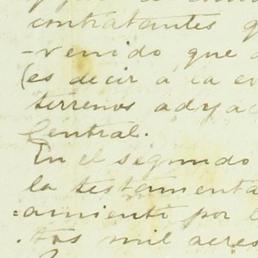 contratantes q
-venido que
(es decir a la e
terrenos adya
Central.
En el segundo
la testamenta
:amiento por l
.tos mil acres